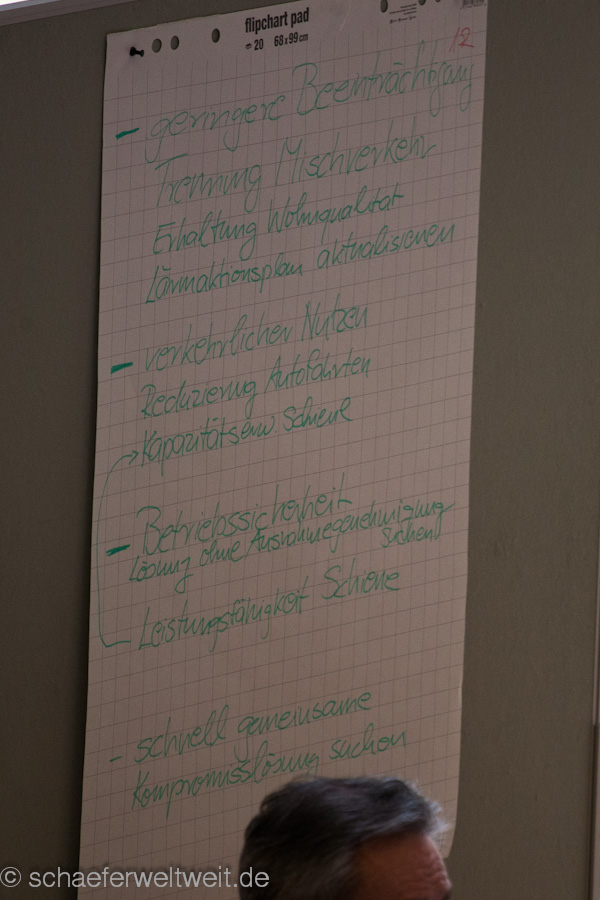 flipchart pad
20 68x99cm
12
– geringere Beeinträchtigung
Trennung Mischverkehr
Erhaltung Wohnqualität
Lärmaktionsplan aktualisieren
– verkehrlicher Nutzen
Reduzierung Autofahrten
Kapazitätserw. Schiene
– Betriebssicherheit
Lösung ohne Ausnahmegenehmigung
suchen
Leistungsfähigkeit Schiene
– schnell gemeinsame
Kompromisslösung suchen
© schaeferweltweit.de